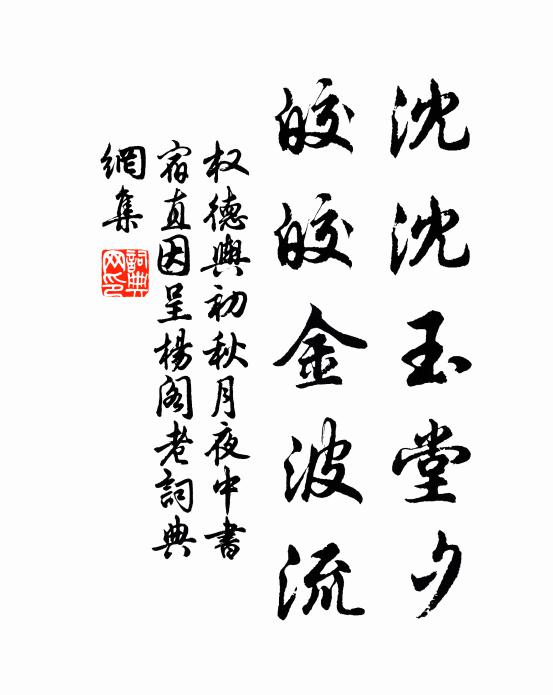 沈沈玉堂夕
皎皎金波流
权德輿初秋月夜中書
宿直因呈楊阁老詞典
網集
詞典
网印